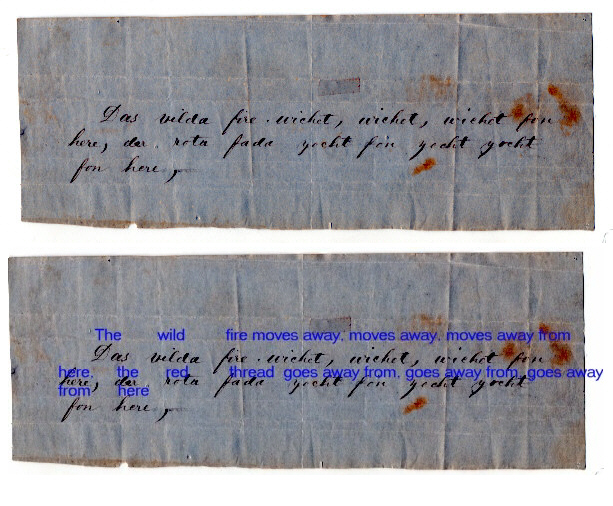 Das vilda fire wichet, wichet, wichet fon
here, dar rota fada yocht fon yocht yocht
fon here,
The wild fire moves away, moves away, moves away from
Das vilda fire wichet, wichet, wichet fon
here, the red thread goes away from, goes away from, goes away
here, dar rota fada yocht fon yocht yocht
from here
fon here,